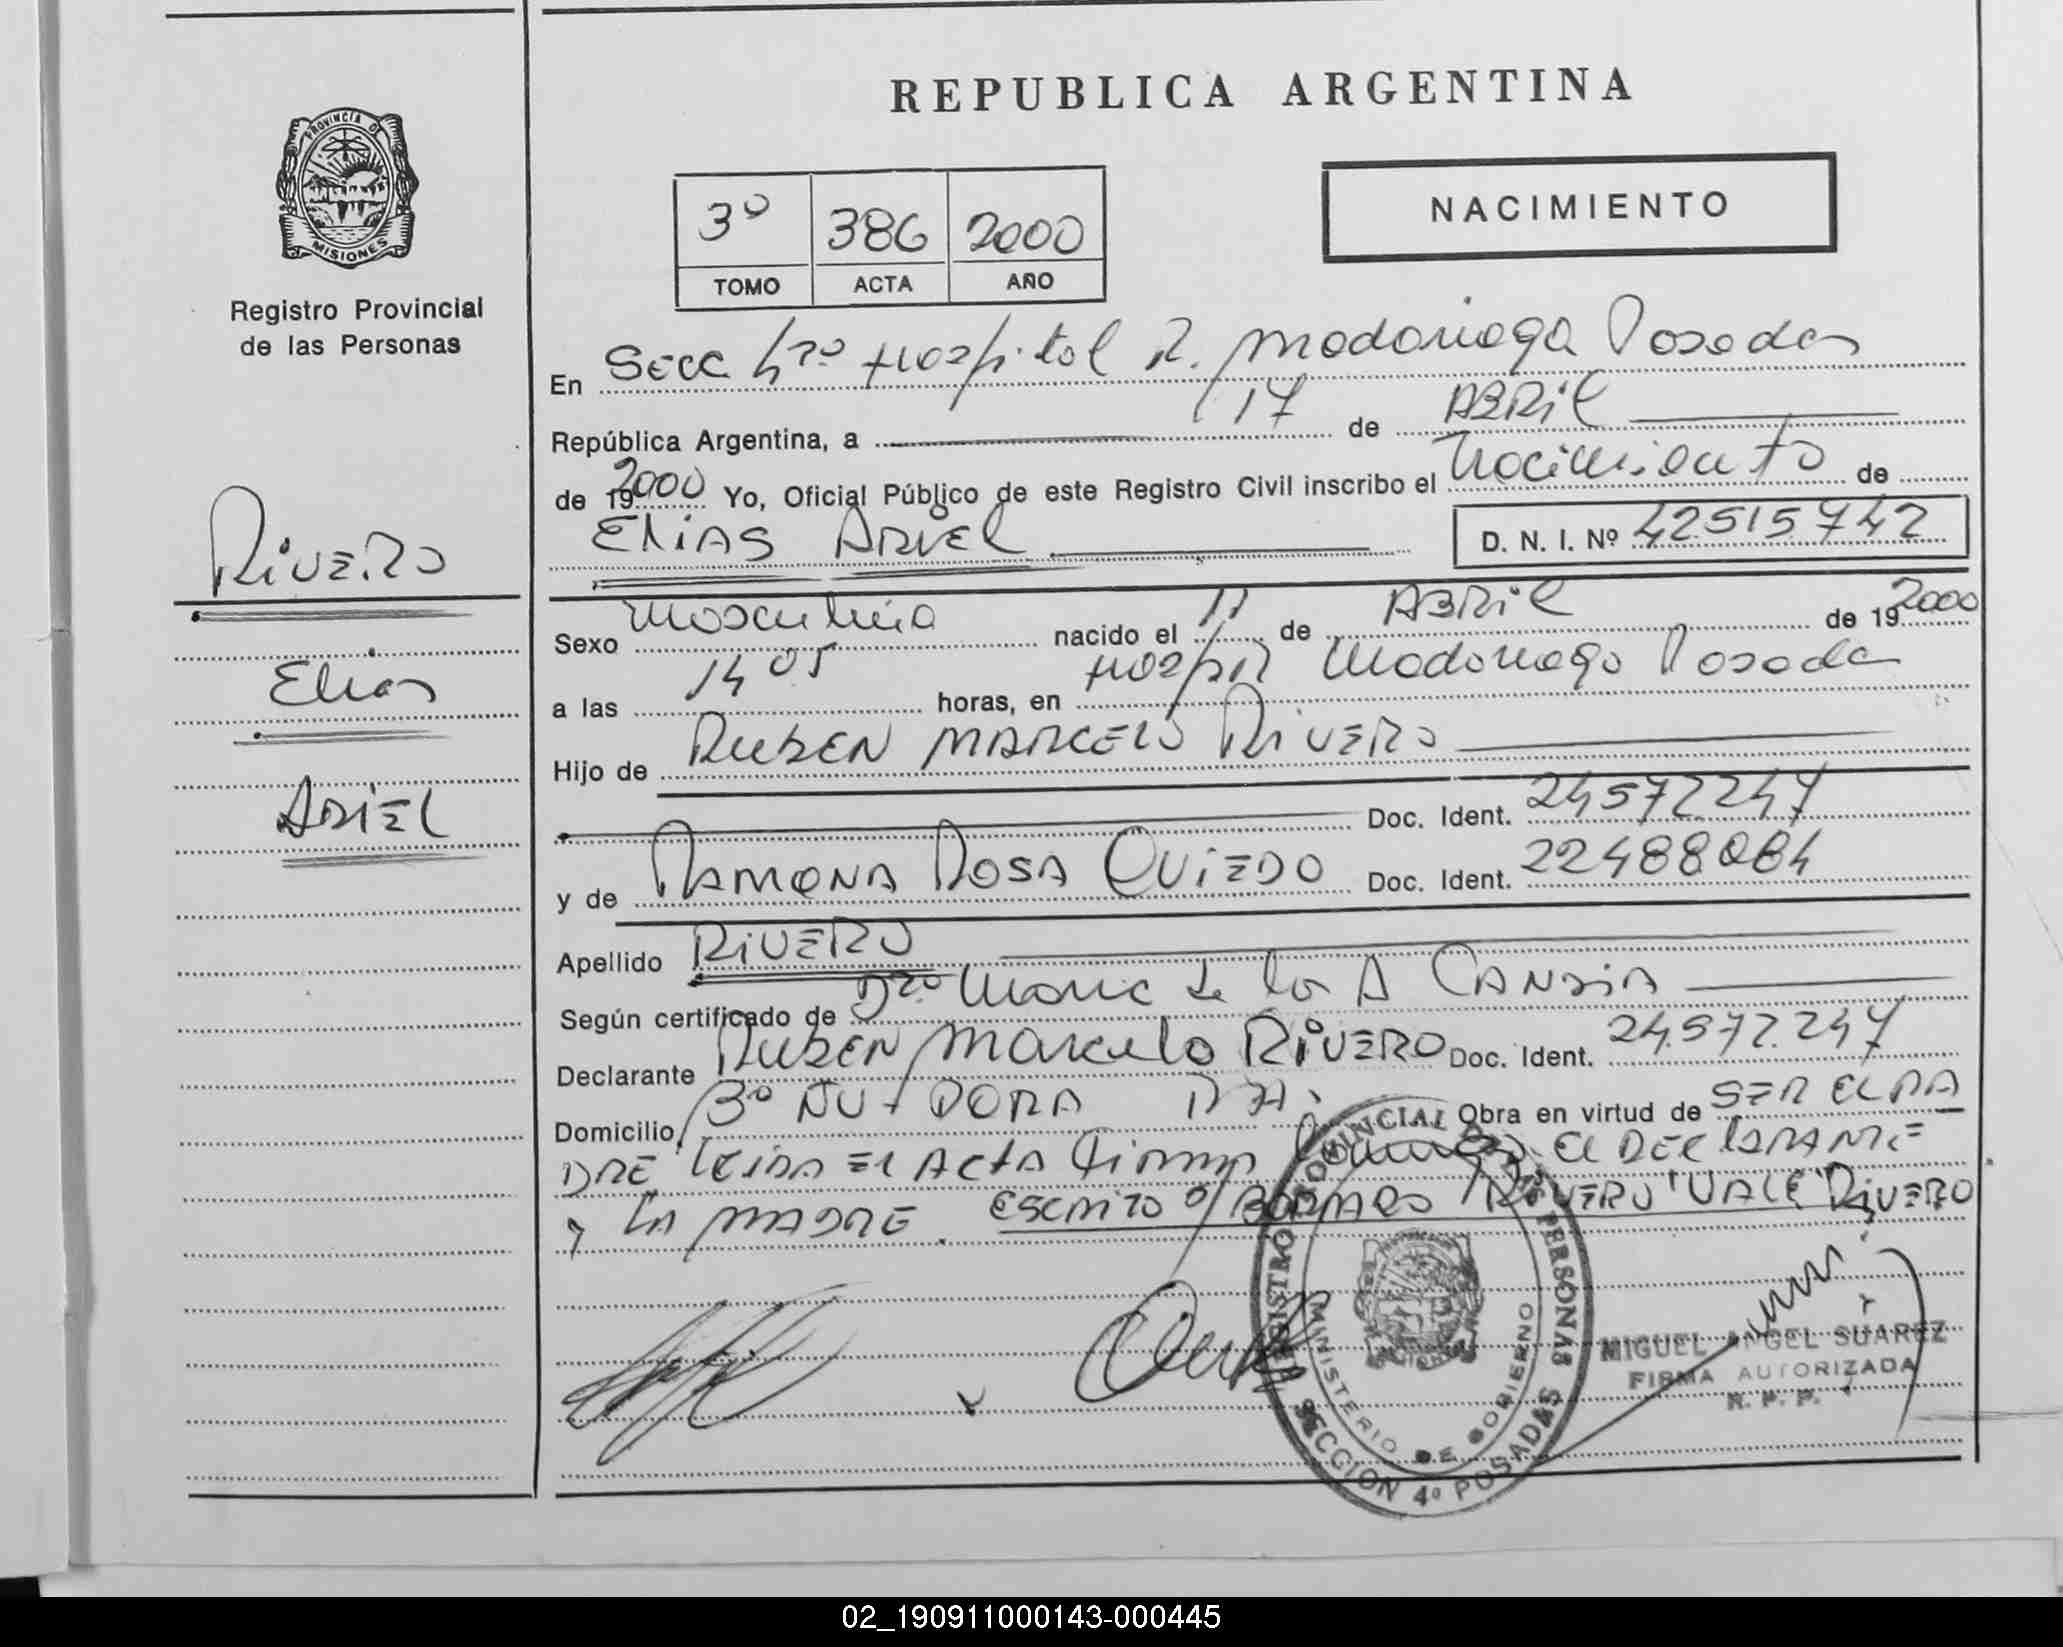 REPUBLICA ARGENTINA
PROVINCIA DE
MISIONES
Registro Provincial
de las Personas
3º 386 2000
TOMO ACTA AÑO
NACIMIENTO
En Secc 4ta Hospital R. Madariaga Posadas
República Argentina, a 17 de ABRIL
de 19 2000 Yo, Oficial Público de este Registro Civil inscribo el Nacimiento de
ELIAS ARIEL D. N. I. Nº 42515742
RIVERO
Elias
ARIEL
Sexo Masculino nacido el 11 de ABRIL de 19 2000
a las 14 05 horas, en Hospi R Madariaga Posadas
Hijo de RUBEN MARCELO RIVERO
Doc. Ident. 24572247
y de RAMONA ROSA OVIEDO Doc. Ident. 22488084
Apellido RIVERO
Según certificado de Dra Maria de los A CANDIA
Declarante RUBEN Marcelo RIVERO Doc. Ident. 24.572.247
Domicilio Obra en virtud de SER EL PA
DRE LEIDA EL ACTA FIRMAN EL DECLARANTE
y LA MADRE. ESCRITO S/ BORRADO RIVERO "VALE" RIVERO
REGISTRO PROVINCIAL DE LAS PERSONAS
MINISTERIO DE GOBIERNO
SECCION 4º POSADAS
MIGUEL ANGEL SUAREZ
FIRMA AUTORIZADA
R. P. P.
02_190911000143-000445